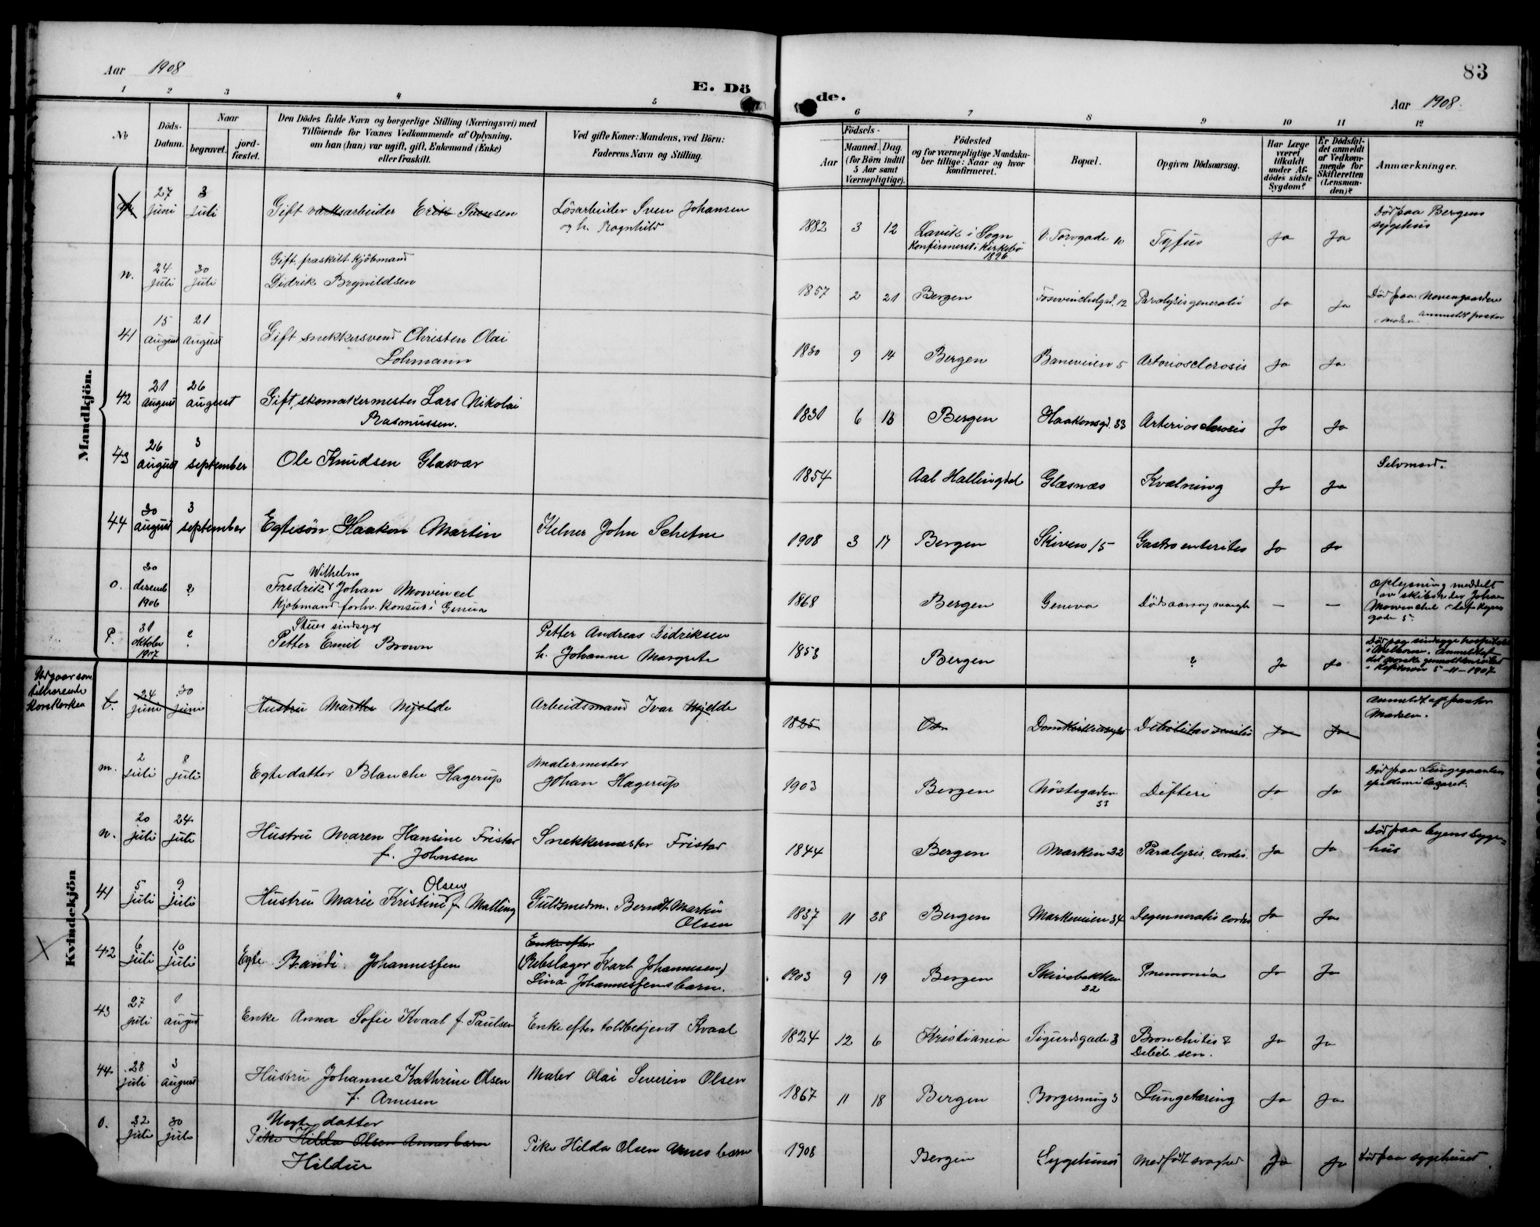 Aar 1908
E. Dö
de.
83
Aar 1908.
1 2 3 4 5 6 7 8 9 10 11 12
No
Döds-
Datum.
Naar
begravet.
jord-
fæstet.
Den Dödes fulde Navn og borgerlige Stilling (Næringsvei) med
Tilföiende for Voxnes Vedkommende af Oplysning,
om han (hun) var ugift, gift, Enkemand (Enke)
eller fraskilt.
Ved gifte Koner: Mandens, ved Börn:
Faderens Navn og Stilling.
Födsels-
Aar
Maaned. Dag
(for Börn indtil
5 Aar samt
Værnepligtige).
Födested
og for værnepligtige Mandska-
ber tillige: Naar og hvor
konfirmeret.
Bopæl.
Opgiven Dödsaarsag.
Har Læge
været
tilkaldt
under Af-
dödes sidste
Sygdom?
Er Dödsfal-
det anmeldt
af Vedkom-
mende for
Skifteretten
(Lensman-
den)?
Anmærkninger.
Mandkjön.
27 juni 3 juli Gift Løsarbeider Sven Johansen
og h. Ragnhild
1882 3 12 Lavik i Sogn
Konfirmeret i Kirkebø
1896
Torvgade 10 Tyfus Ja Ja Død paa Bergens
sygehus
n. 24 juli 30 juli Gift, fraskilt Kjöbmand
Didrik Brynildsen
1857 2 21 Bergen 12 Paralysis generalis Ja Ja Død paa
41 15 august 21 august Gift snekkersvend Christen Olai
Lohmann
1830 9 14 Bergen Baneveien 5 Arteriosclerosis Ja Ja
42 21 august 26 august Gift, skomakermester Lars Nikolai
Rasmussen.
1831 6 13 Bergen Haakonsgd. 33 Arteriosclerosis Ja Ja
43 26 august 3 september Ole Knudsen Glasvær
1854 Aal Hallingdal Glæsnæs Kvælning Ja Ja Selvmord.
44 30 august 3 september Egtesøn Haakon Martin Kelner John Schetne
1908 3 17 Bergen Skiven 15 Gastroenterites Ja Ja
o. 30 decemb 1906 ? Wilhelm
Fredrik Johan Mowinckel
Kjöbmand forhv. konsul i Genua
1868 Bergen Genova Dødsaarsag mangler — — Oplysning meddelt
av skibsreder Johan
P. 31 oktober 1907 ? sindsyg
Petter Emil Brown Petter Andreas Didriksen
h. Johanne Margrete
1858 Bergen ? Ja Ja
5-11-1907.
Kvindekjön
24 juni 30 juni Hustru Marthe Mjelde Arbeidsmand Ivar Mjelde
1825 Os Debilitas senilis Ja Ja Anmeldt af pastor
m. 2 juli 8 juli Egte datter Blanche Hagerup Malermester
Johan Hagerup
1903 Bergen Nöstegaden
53 Difteri Ja Ja Død paa Lungegaardens
epidemilazaret.
n. 20 juli 24 juli Hustru Maren Hansine Fristad
f. Johnsen Snekkermester Fristad
1844 Bergen Marken 32 Paralysis cordis Ja Ja Død paa byens syge-
hus
41 5 juli 9 juli Olsen
Hustru Marie Kristine f. Malling Guldsmedm. Berndt Martin
Olsen
1837 11 28 Bergen Markeveien 34 Degeneratio cordis Ja Ja
42 6 juli 10 juli Egte Johannessen Enke efter
(Rebslager Karl Johannessen)
Lina Johannessens barn.
1903 9 19 Bergen Skivebakken
32 Pnemonia Ja Ja
43 27 juli 1 august Enke Anna Sofie Kvaal f. Paulsen Enke efter toldbetjent Kvaal
1824 12 6 Kristiania Sigurdsgade 3 Bronchitis &
Debil. sen. Ja Ja
44 28 juli 3 august Hustru Johanne Kathrine Olsen
f. Arnesen Maler Olai Severin Olsen
1867 11 18 Bergen Lungetæring Ja Ja
o. 22 juli 30 juli Uegte datter
Pike Hilda Olsen Arnes barn
Hildur Pike Hilda Olsen Arnes barn
1908 Bergen Sygehuset Medfödt svaghed Ja Ja Død paa sygehuset